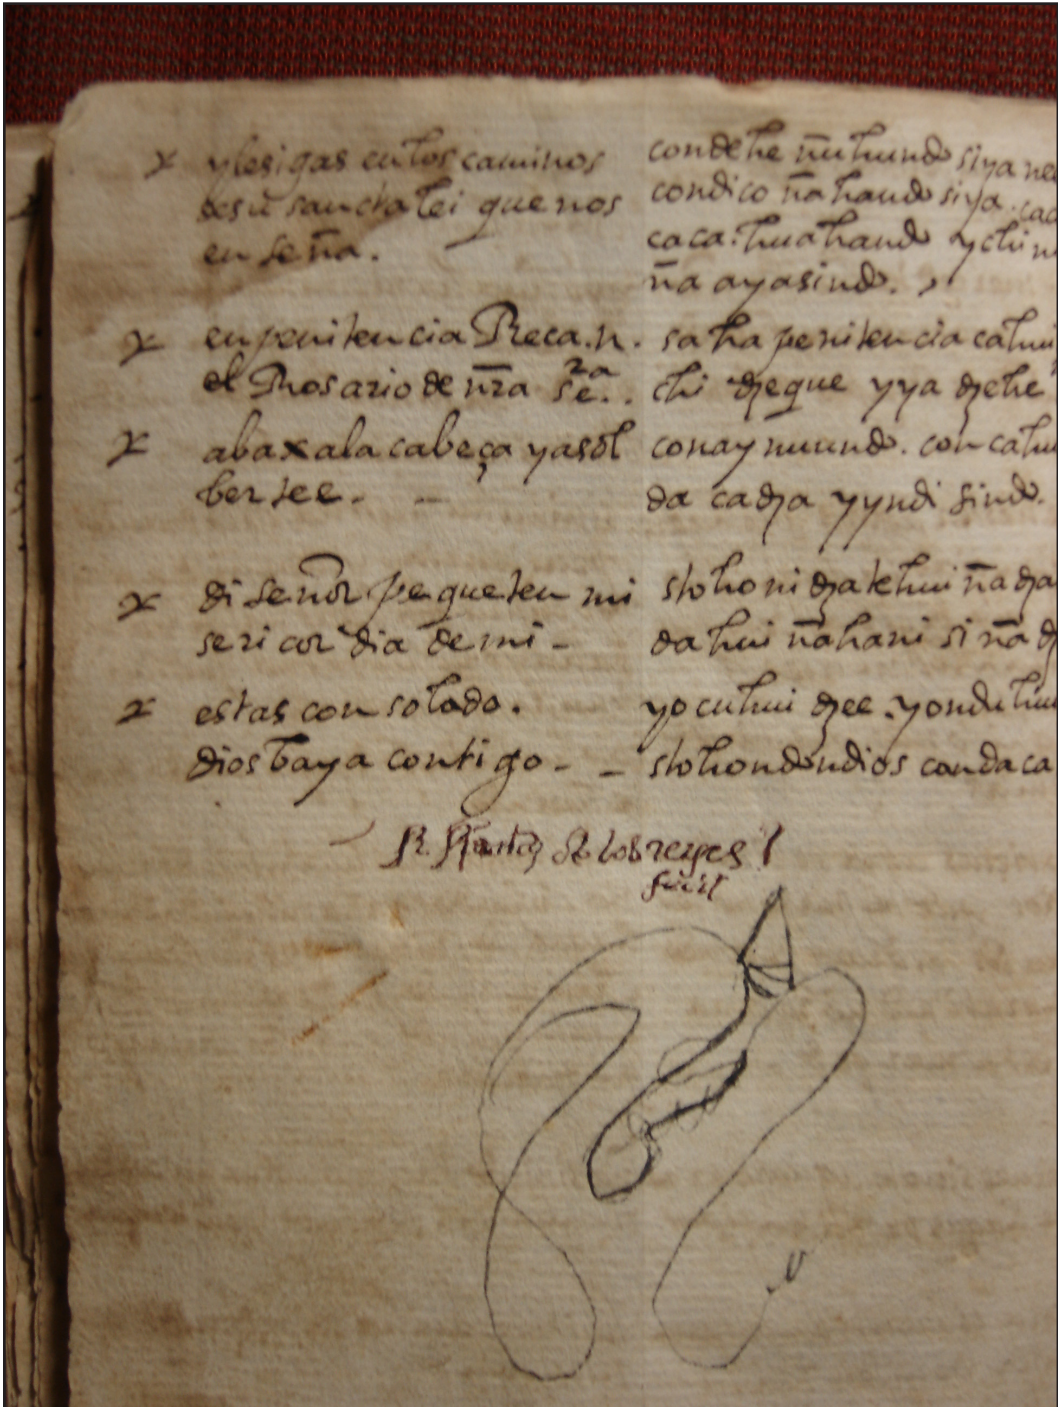 x ylesigas en los caminos
desu sancta lei que nos
enseña.
x en penitencia Reca.
el Rosario de nr̄a sēra.
x abaxa la cabeça yasol
bertee.
x di señor pequeten mi
sericordia de mi -
x estas consolado.
dios baya contigo - -
condehe ñuhundo siya
condico ñahando siya.
caca. huahando ychi
ña ayasindo.
saha penitencia cahui
chi dzeque yya dzehe
conaynuundo. concahui
da cadza yyndi sindo.
stohoni dzatehui ña dza
dahui ñahani si ña
yocuhui dzee. yonduhui
stohondondios condaca
de los reyes